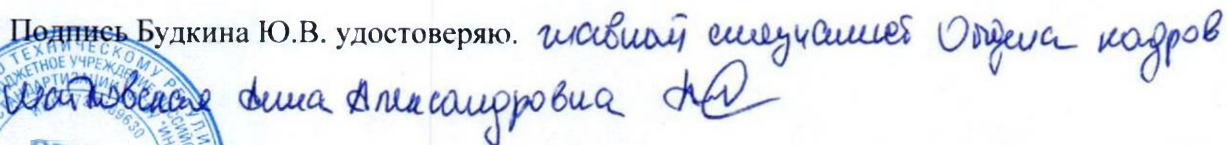 Подпись Будкина Ю.В. удостоверяю. главный специалист Отдела кадров
Анна Александровна